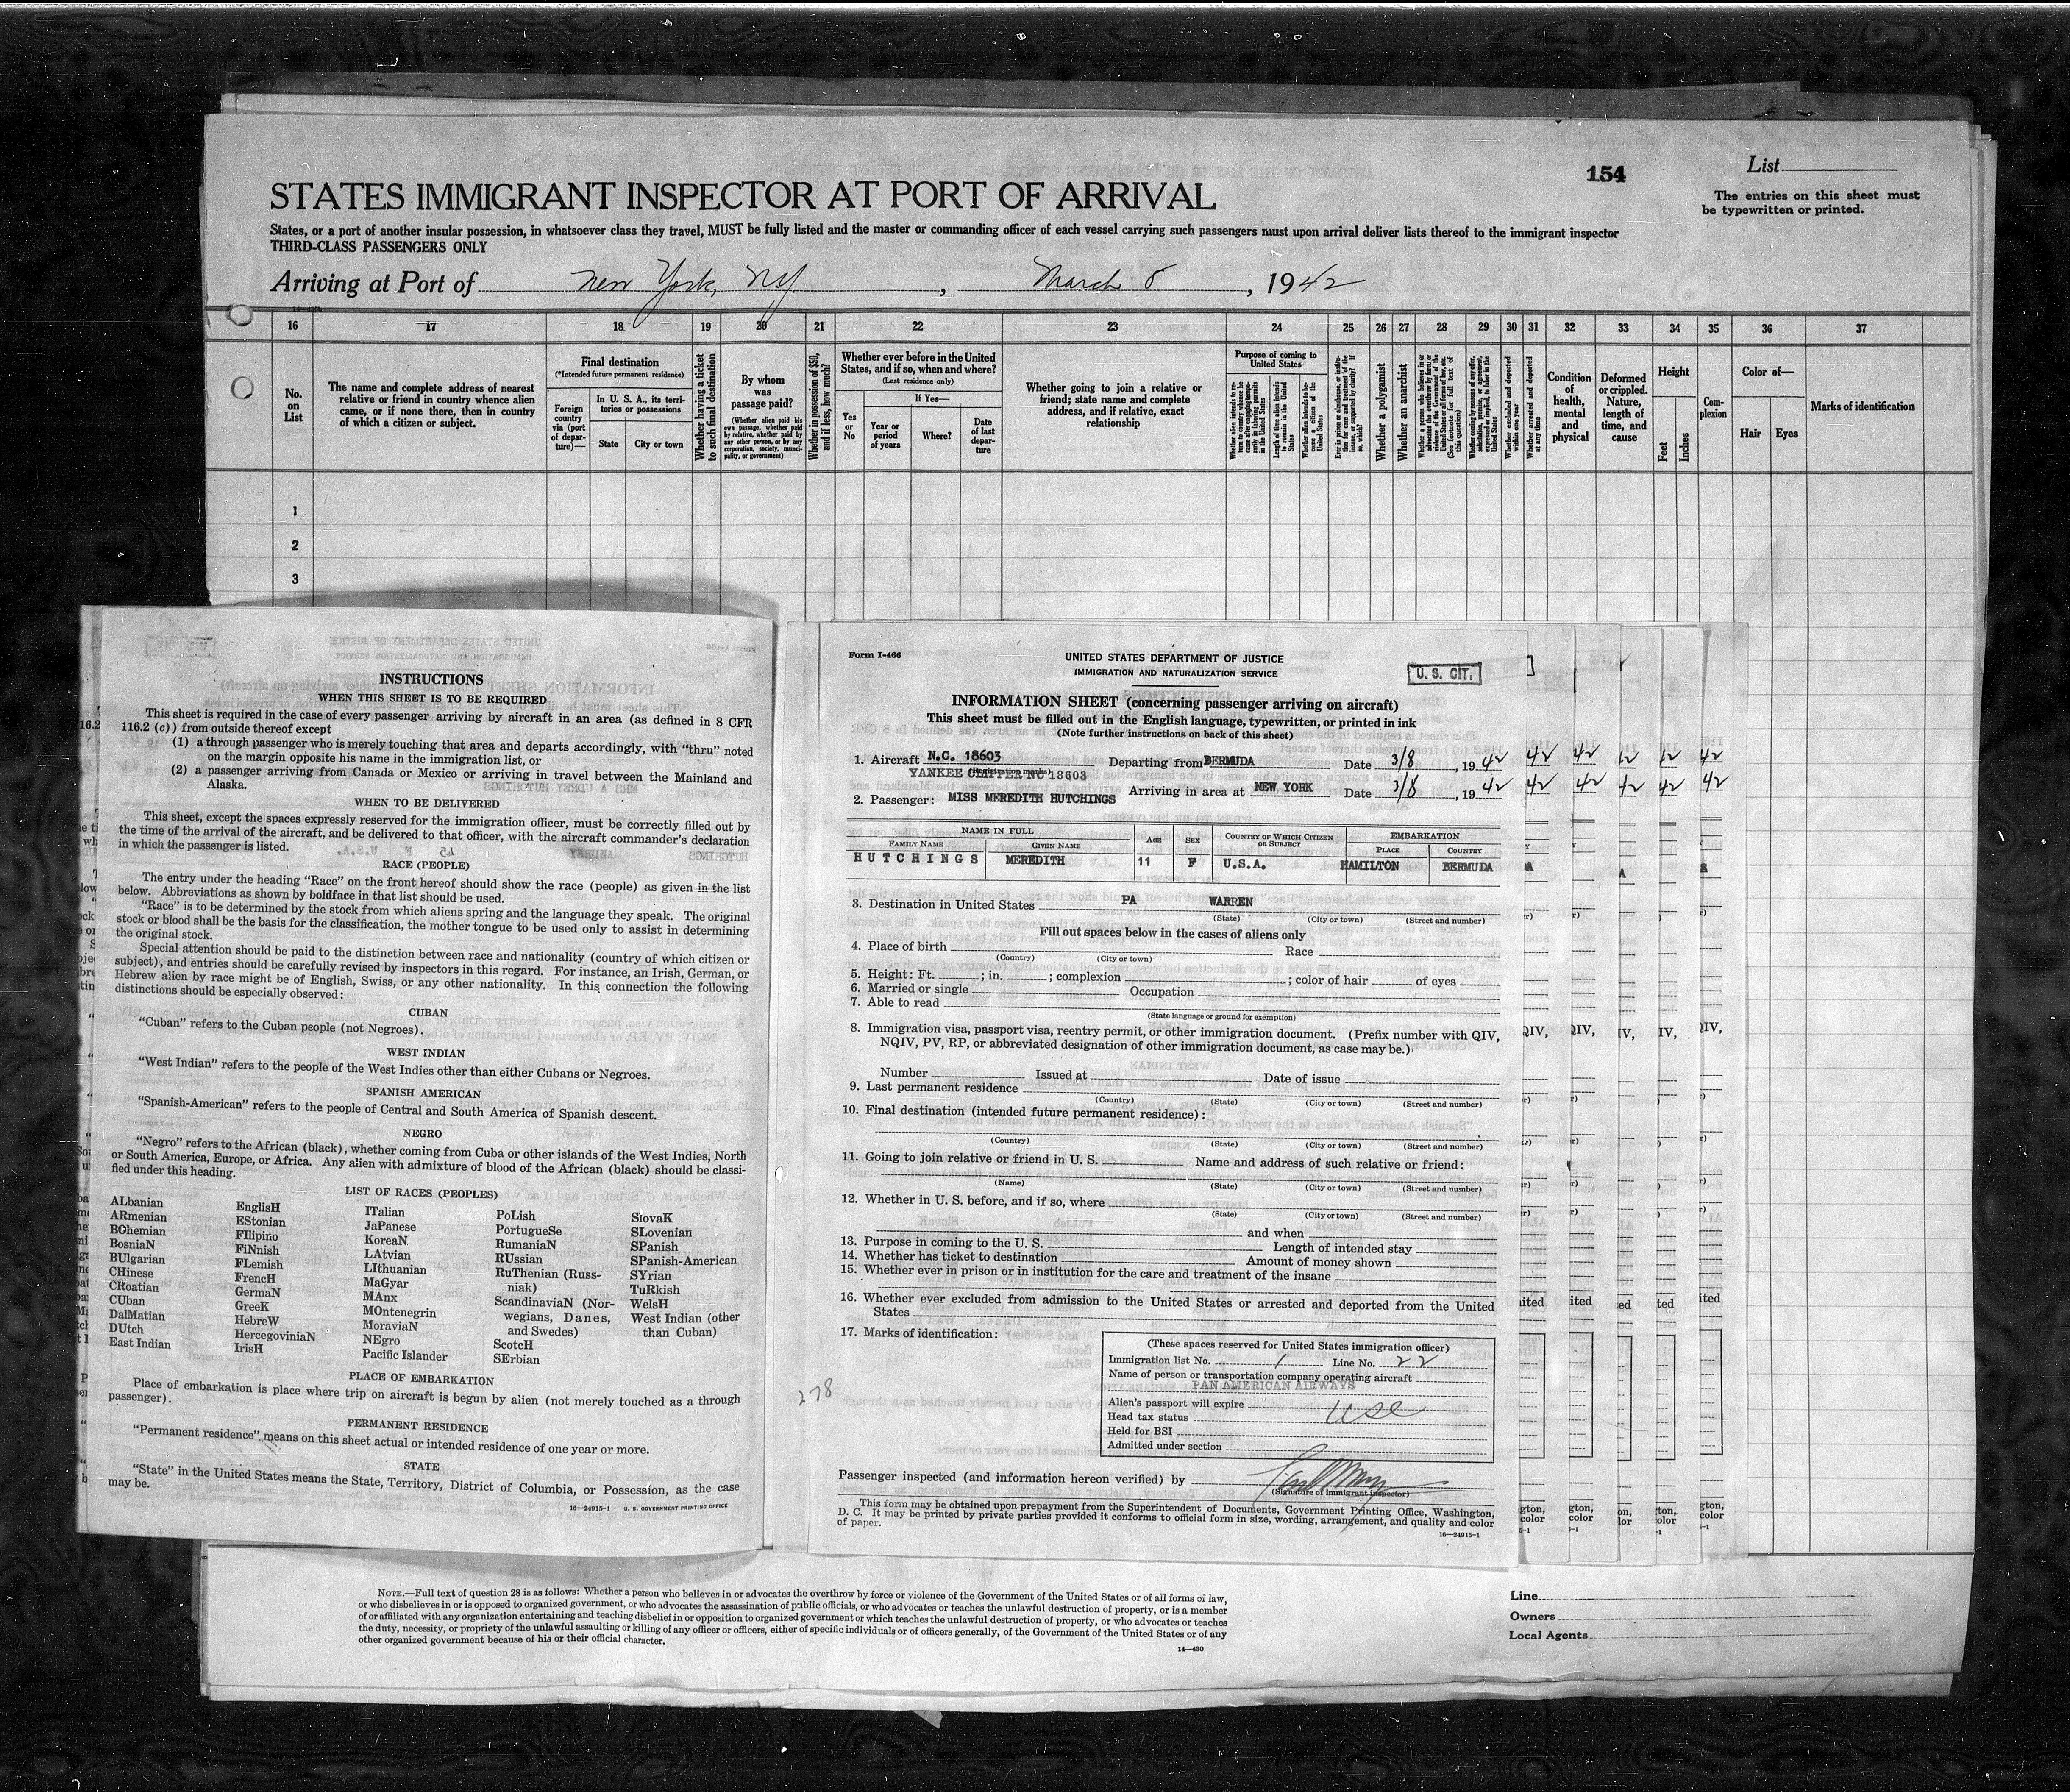 154
List
The entries on this sheet must
be typewritten or printed.
STATES IMMIGRANT INSPECTOR AT PORT OF ARRIVAL
States, or a port of another insular possession, in whatsoever class they travel, MUST be fully listed and the master or commanding officer of each vessel carrying such passengers must upon arrival deliver lists thereof to the immigrant inspector
THIRD-CLASS PASSENGERS ONLY
Arriving at Port of New York, NY. , March 8 , 1942
16 17 18 19 20 21 22 23 24 25 26 27 28 29 30 31 32 33 34 35 36 37
No. on List
The name and complete address of nearest relative or friend in country whence alien came, or if none there, then in country of which a citizen or subject.
Final destination
(*Intended future permanent residence)
Foreign country via (port of departure)—
In U. S. A., its territories or possessions
State
City or town
Whether having a ticket to such final destination
By whom was passage paid?
(Whether alien paid his own passage, whether paid by relative, whether paid by any other person, or by any corporation, society, municipality, or government)
Whether in possession of $50, and if less, how much?
Whether ever before in the United States, and if so, when and where?
(Last residence only)
Yes or No
If Yes—
Year or period of years
Where?
Date of last departure
Whether going to join a relative or friend; state name and complete address, and if relative, exact relationship
Purpose of coming to United States
Length of time alien intends to remain in the United States
Whether a polygamist
Whether an anarchist
Whether excluded and deported within one year
Whether arrested and deported at any time
Condition of health, mental and physical
Deformed or crippled. Nature, length of time, and cause
Height
Feet
Inches
Complexion
Color of—
Hair
Eyes
Marks of identification
1
2
3
INSTRUCTIONS
WHEN THIS SHEET IS TO BE REQUIRED
This sheet is required in the case of every passenger arriving by aircraft in an area (as defined in 8 CFR
116.2 (c)) from outside thereof except
(1) a through passenger who is merely touching that area and departs accordingly, with "thru" noted
on the margin opposite his name in the immigration list, or
(2) a passenger arriving from Canada or Mexico or arriving in travel between the Mainland and
Alaska.
WHEN TO BE DELIVERED
This sheet, except the spaces expressly reserved for the immigration officer, must be correctly filled out by
the time of the arrival of the aircraft, and be delivered to that officer, with the aircraft commander's declaration
in which the passenger is listed.
RACE (PEOPLE)
The entry under the heading "Race" on the front hereof should show the race (people) as given in the list
below. Abbreviations as shown by boldface in that list should be used.
"Race" is to be determined by the stock from which aliens spring and the language they speak. The original
stock or blood shall be the basis for the classification, the mother tongue to be used only to assist in determining
the original stock.
Special attention should be paid to the distinction between race and nationality (country of which citizen or
subject), and entries should be carefully revised by inspectors in this regard. For instance, an Irish, German, or
Hebrew alien by race might be of English, Swiss, or any other nationality. In this connection the following
distinctions should be especially observed:
CUBAN
"Cuban" refers to the Cuban people (not Negroes).
WEST INDIAN
"West Indian" refers to the people of the West Indies other than either Cubans or Negroes.
SPANISH AMERICAN
"Spanish-American" refers to the people of Central and South America of Spanish descent.
NEGRO
"Negro" refers to the African (black), whether coming from Cuba or other islands of the West Indies, North
or South America, Europe, or Africa. Any alien with admixture of blood of the African (black) should be classi-
fied under this heading.
LIST OF RACES (PEOPLES)
ALbanian
ARmenian
BOhemian
BosniaN
BUlgarian
CHinese
CRoatian
CUban
DalMatian
DUtch
East Indian
EnglisH
EStonian
FIlipino
FiNnish
FLemish
FrencH
GermaN
GreeK
HebreW
HercegoviniaN
IrisH
ITalian
JaPanese
KoreaN
LAtvian
LIthuanian
MaGyar
MAnx
MOntenegrin
MoraviaN
NEgro
Pacific Islander
PoLish
PortugueSe
RumaniaN
RUssian
RuThenian (Russ-
niak)
ScandinaviaN (Nor-
wegians, Danes,
and Swedes)
ScotcH
SErbian
SlovaK
SLovenian
SPanish
SPanish-American
SYrian
TuRkish
WelsH
West Indian (other
than Cuban)
PLACE OF EMBARKATION
Place of embarkation is place where trip on aircraft is begun by alien (not merely touched as a through
passenger).
PERMANENT RESIDENCE
"Permanent residence" means on this sheet actual or intended residence of one year or more.
STATE
"State" in the United States means the State, Territory, District of Columbia, or Possession, as the case
may be.
16—24915-1 U. S. GOVERNMENT PRINTING OFFICE
278
Form I-466
UNITED STATES DEPARTMENT OF JUSTICE
IMMIGRATION AND NATURALIZATION SERVICE
U. S. CIT.
INFORMATION SHEET (concerning passenger arriving on aircraft)
This sheet must be filled out in the English language, typewritten, or printed in ink
(Note further instructions on back of this sheet)
1. Aircraft N.C. 18603 Departing from BERMUDA Date 3/8, 1942
YANKEE CLIPPER NC 18603 Arriving in area at NEW YORK Date 3/8, 1942
2. Passenger: MISS MEREDITH HUTCHINGS
NAME IN FULL
FAMILY NAME GIVEN NAME AGE SEX COUNTRY OF WHICH CITIZEN OR SUBJECT EMBARKATION PLACE COUNTRY
HUTCHINGS MEREDITH 11 F U.S.A. HAMILTON BERMUDA
3. Destination in United States PA WARREN
(State) (City or town) (Street and number)
Fill out spaces below in the cases of aliens only
4. Place of birth Race
(Country) (City or town)
5. Height: Ft. ; in. ; complexion ; color of hair of eyes
6. Married or single Occupation
7. Able to read
(State language or ground for exemption)
8. Immigration visa, passport visa, reentry permit, or other immigration document. (Prefix number with QIV,
NQIV, PV, RP, or abbreviated designation of other immigration document, as case may be.)
Number Issued at Date of issue
9. Last permanent residence
(Country) (State) (City or town) (Street and number)
10. Final destination (intended future permanent residence):
(Country) (State) (City or town) (Street and number)
11. Going to join relative or friend in U. S. Name and address of such relative or friend:
(Name) (State) (City or town) (Street and number)
12. Whether in U. S. before, and if so, where
(State) (City or town) (Street and number)
and when
13. Purpose in coming to the U. S. Length of intended stay
14. Whether has ticket to destination Amount of money shown
15. Whether ever in prison or in institution for the care and treatment of the insane
16. Whether ever excluded from admission to the United States or arrested and deported from the United
States
17. Marks of identification:
(These spaces reserved for United States immigration officer)
Immigration list No. 1 Line No. 22
Name of person or transportation company operating aircraft
PAN AMERICAN AIRWAYS
Alien's passport will expire
Head tax status
Held for BSI
Admitted under section
Passenger inspected (and information hereon verified) by
(Signature of immigrant inspector)
This form may be obtained upon prepayment from the Superintendent of Documents, Government Printing Office, Washington,
D. C. It may be printed by private parties provided it conforms to official form in size, wording, arrangement, and quality and color
of paper.
16—24915-1
NOTE.—Full text of question 28 is as follows: Whether a person who believes in or advocates the overthrow by force or violence of the Government of the United States or of all forms of law,
or who disbelieves in or is opposed to organized government, or who advocates the assassination of public officials, or who advocates or teaches the unlawful destruction of property, or is a member
of or affiliated with any organization entertaining and teaching disbelief in or opposition to organized government or which teaches the unlawful destruction of property, or who advocates or teaches
the duty, necessity, or propriety of the unlawful assaulting or killing of any officer or officers, either of specific individuals or of officers generally, of the Government of the United States or of any
other organized government because of his or their official character.
14—430
Line
Owners
Local Agents